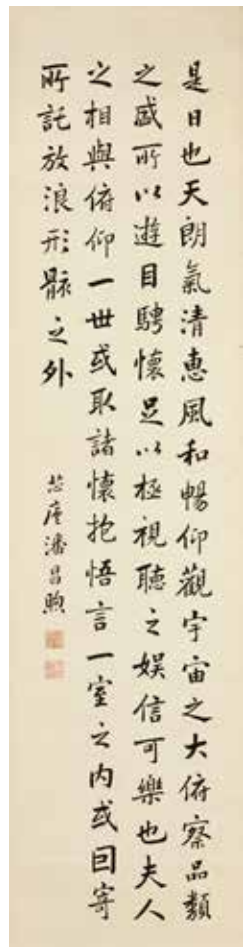 是日也天朗氣清惠風和暢仰觀宇宙之大俯察品類
之盛所以遊目騁懷足以極視聽之娛信可樂也夫人
之相與俯仰一世或取諸懷抱悟言一室之內或因寄
所託放浪形骸之外
芯廬潘昌煦